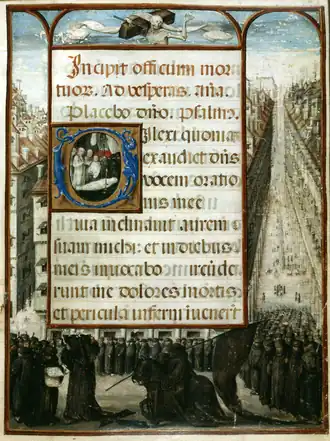 Incipit officium mor
tuor. Ad vesperas. an̄a
Placebo dn̄o. psalm9.
Dilexi quonia
exaudiet dn̄s
vocem oratio
nis mee
Quia inclinavit aurem
suam michi: et in diebus
meis invocabo
runt me dolores mortis:
et pericula inferni